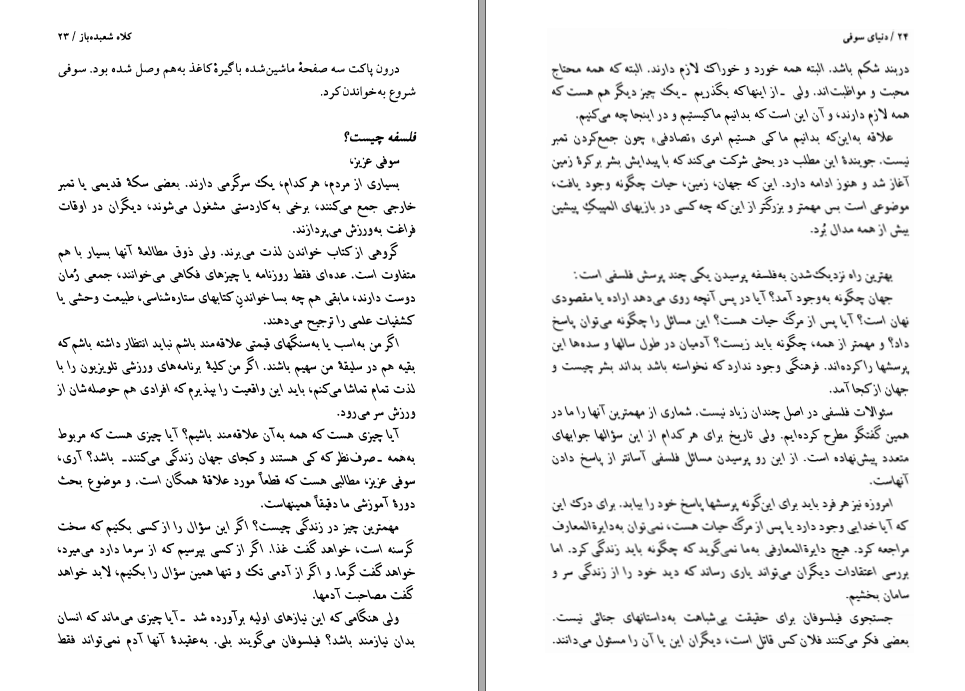 کلاه شعبده‌باز / ۲۳
درون پاکت سه صفحهٔ ماشین‌شده با گیرهٔ کاغذ به‌هم وصل شده بود. سوفی
شروع به‌خواندن کرد.
فلسفه چیست؟
سوفی عزیز،
بسیاری از مردم، هر کدام، یک سرگرمی دارند. بعضی سکهٔ قدیمی یا تمبر
خارجی جمع می‌کنند، برخی به‌کاردستی مشغول می‌شوند، دیگران در اوقات
فراغت به‌ورزش می‌پردازند.
گروهی از کتاب خواندن لذت می‌برند. ولی ذوق مطالعهٔ آنها بسیار با هم
متفاوت است. عده‌ای فقط روزنامه یا چیزهای فکاهی می‌خوانند، جمعی رُمان
دوست دارند، مابقی هم چه بسا خواندنِ کتابهای ستاره‌شناسی، طبیعت وحشی یا
کشفیات علمی را ترجیح می‌دهند.
اگر من به‌اسب یا به‌سنگهای قیمتی علاقه‌مند باشم نباید انتظار داشته باشم که
بقیه هم در سلیقهٔ من سهیم باشند. اگر من کلیهٔ برنامه‌های ورزشی تلویزیون را با
لذت تمام تماشا می‌کنم، باید این واقعیت را بپذیرم که افرادی هم حوصله‌شان از
ورزش سر می‌رود.
آیا چیزی هست که همه به‌آن علاقه‌مند باشیم؟ آیا چیزی هست که مربوط
به‌همه ـ صرف‌نظر که کی هستند و کجای جهان زندگی می‌کنند ـ باشد؟ آری،
سوفی عزیز، مطالبی هست که قطعاً مورد علاقهٔ همگان است. و موضوع بحث
دورهٔ آموزشی ما دقیقاً همینهاست.
مهمترین چیز در زندگی چیست؟ اگر این سؤال را از کسی بکنیم که سخت
گرسنه است، خواهد گفت غذا. اگر از کسی بپرسیم که از سرما دارد می‌میرد،
خواهد گفت گرما. و اگر از آدمی تک و تنها همین سؤال را بکنیم، لابد خواهد
گفت مصاحبت آدمها.
ولی هنگامی که این نیازهای اولیه برآورده شد ـ آیا چیزی می‌ماند که انسان
بدان نیازمند باشد؟ فیلسوفان می‌گویند بلی. به‌عقیدهٔ آنها آدم نمی‌تواند فقط
۲۴ / دنیای سوفی
دربند شکم باشد. البته همه خورد و خوراک لازم دارند. البته که همه محتاج
محبت و مواظبت‌اند. ولی ـ از اینها که بگذریم ـ یک چیز دیگر هم هست که
همه لازم دارند، و آن این است که بدانیم ما کیستیم و در اینجا چه می‌کنیم.
علاقه به‌این‌که بدانیم ما کی هستیم امری «تصادفی» چون جمع‌کردن تمبر
نیست. جویندهٔ این مطلب در بحثی شرکت می‌کند که با پیدایش بشر بر کرهٔ زمین
آغاز شد و هنوز ادامه دارد. این که جهان، زمین، حیات چگونه وجود یافت،
موضوعی است بس مهمتر و بزرگتر از این که چه کسی در بازیهای المپیکِ پیشین
بیش از همه مدال بُرد.
بهترین راه نزدیک‌شدن به‌فلسفه پرسیدن یکی چند پرسش فلسفی است:
جهان چگونه به‌وجود آمد؟ آیا در پس آنچه روی می‌دهد اراده یا مقصودی
نهان است؟ آیا پس از مرگ حیات هست؟ این مسائل را چگونه می‌توان پاسخ
داد؟ و مهمتر از همه، چگونه باید زیست؟ آدمیان در طول سالها و سده‌ها این
پرسشها را کرده‌اند. فرهنگی وجود ندارد که نخواسته باشد بداند بشر چیست و
جهان از کجا آمد.
سئوالات فلسفی در اصل چندان زیاد نیست. شماری از مهمترین آنها را ما در
همین گفتگو مطرح کرده‌ایم. ولی تاریخ برای هر کدام از این سؤالها جوابهای
متعدد پیش‌نهاده است. از این رو پرسیدن مسائل فلسفی آسانتر از پاسخ دادن
آنهاست.
امروزه نیز هر فرد باید برای این‌گونه پرسشها پاسخ خود را بیابد. برای درک این
که آیا خدایی وجود دارد یا پس از مرگ حیات هست، نمی‌توان به‌دایرةالمعارف
مراجعه کرد. هیچ دایرةالمعارفی به‌ما نمی‌گوید که چگونه باید زندگی کرد. اما
بررسی اعتقادات دیگران می‌تواند یاری رساند که دید خود را از زندگی سر و
سامان بخشیم.
جستجوی فیلسوفان برای حقیقت بی‌شباهت به‌داستانهای جنائی نیست.
بعضی فکر می‌کنند فلان کس قاتل است، دیگران این یا آن را مسئول می‌دانند.